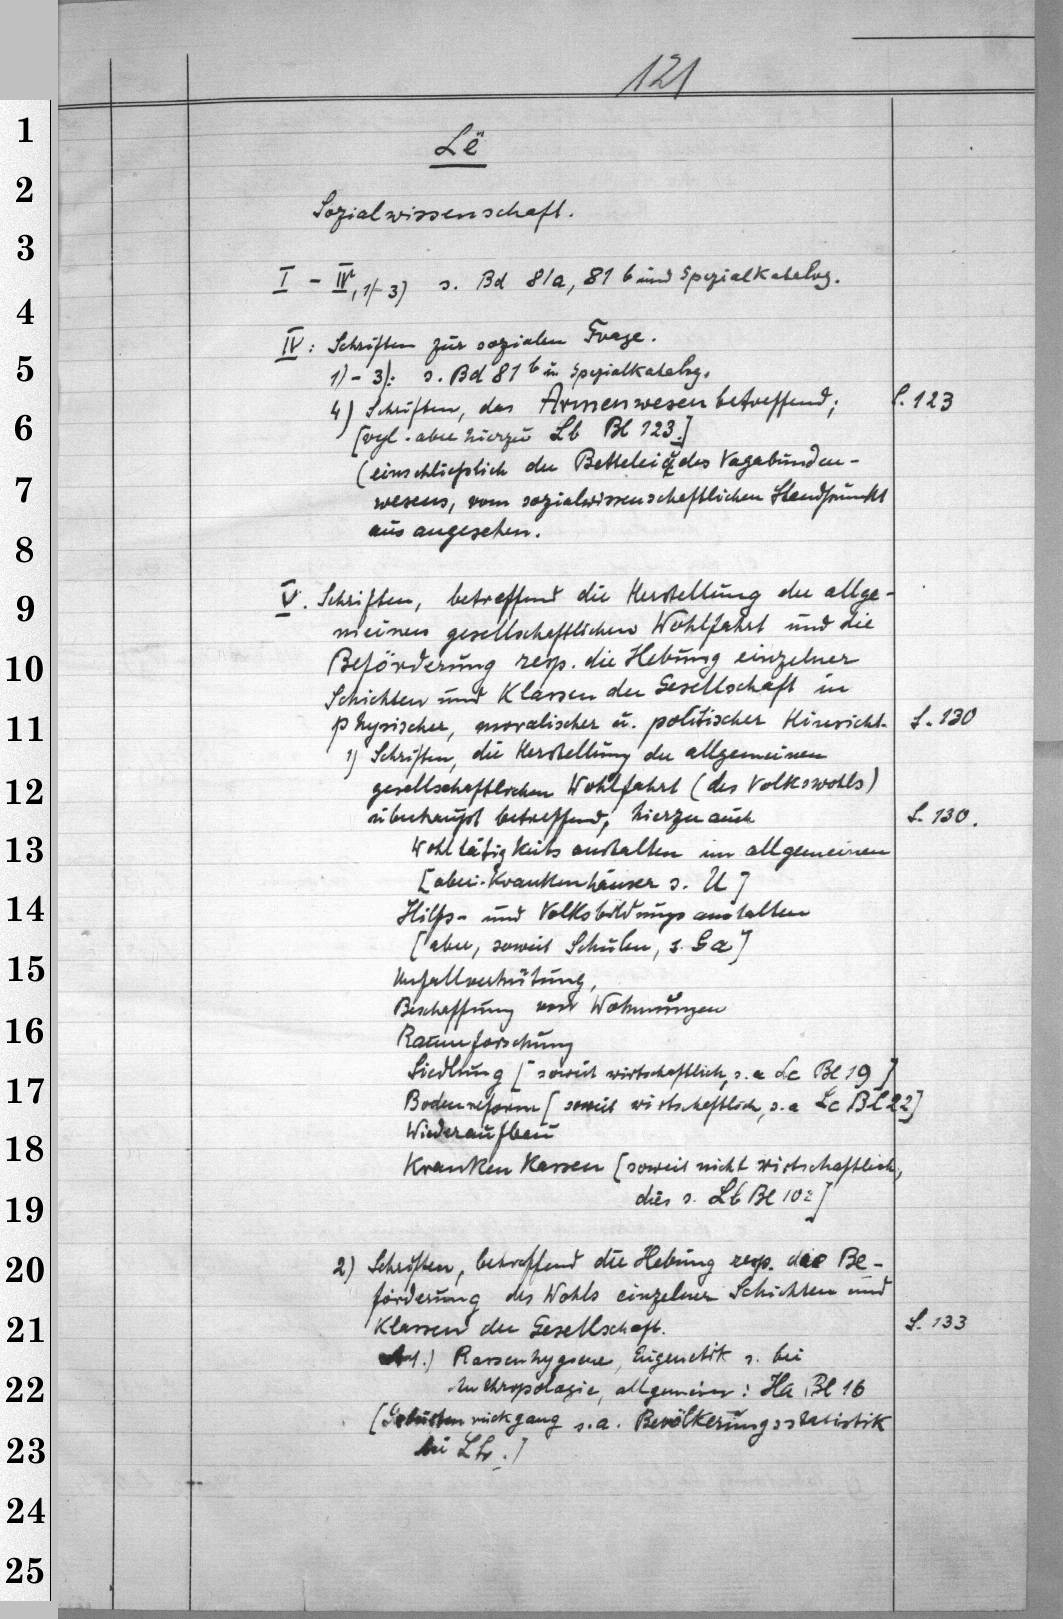 121
Lë
Sozialwissenschaft.
I - IV, 1)-3) s. Bd 81a, 81 b und Spezialkatalog.
IV: Schriften zur sozialen Frage.
1)-3): s. Bd 81 b u. Spezialkatalog.
4) Schriften, das Armenwesen betreffend; S. 123
[vgl. aber hierzu Lb Bl 123.]
(einschließlich der Bettelei & des Vagabunden-
wesens, vom sozialwissenschaftlichen Standpunkt
aus angesehen.
V. Schriften, betreffend die Herstellung der allge-
meinen gesellschaftlichen Wohlfahrt und die
Beförderung resp. die Hebung einzelner
Schichten und Klassen der Gesellschaft in
physischer, moralischer u. politischer Hinsicht. S. 130
1) Schriften, die Herstellung der allgemeinen
gesellschaftlichen Wohlfahrt (des Volkswohls)
überhaupt betreffend; hierzu auch S. 130.
Wohltätigkeitsanstalten im allgemeinen
[aber Krankenhäuser s. U]
Hilfs- und Volksbildungsanstalten
[aber, soweit Schulen, s. Ga]
Unfallverhütung,
Beschaffung von Wohnungen
Raumforschung
Siedlung [soweit wirtschaftlich, s. a Lc Bl 19]
Bodenreform [soweit wirtschaftlich, s. a Lc Bl 22]
Wiederaufbau
Krankenkassen [soweit nicht wirtschaftlich,
dies s. Lb Bl 102]
2) Schriften, betreffend die Hebung resp. die Be-
förderung des Wohls einzelner Schichten und
Klassen der Gesellschaft. S. 133
1.) Rassenhygiene, Eugenetik s. bei
Anthropologie, allgemeine: Ha Bl 16
[Geburtenrückgang s. a. Bevölkerungsstatistik
bei
1
2
3
4
5
6
7
8
9
10
11
12
13
14
15
16
17
18
19
20
21
22
23
24
25